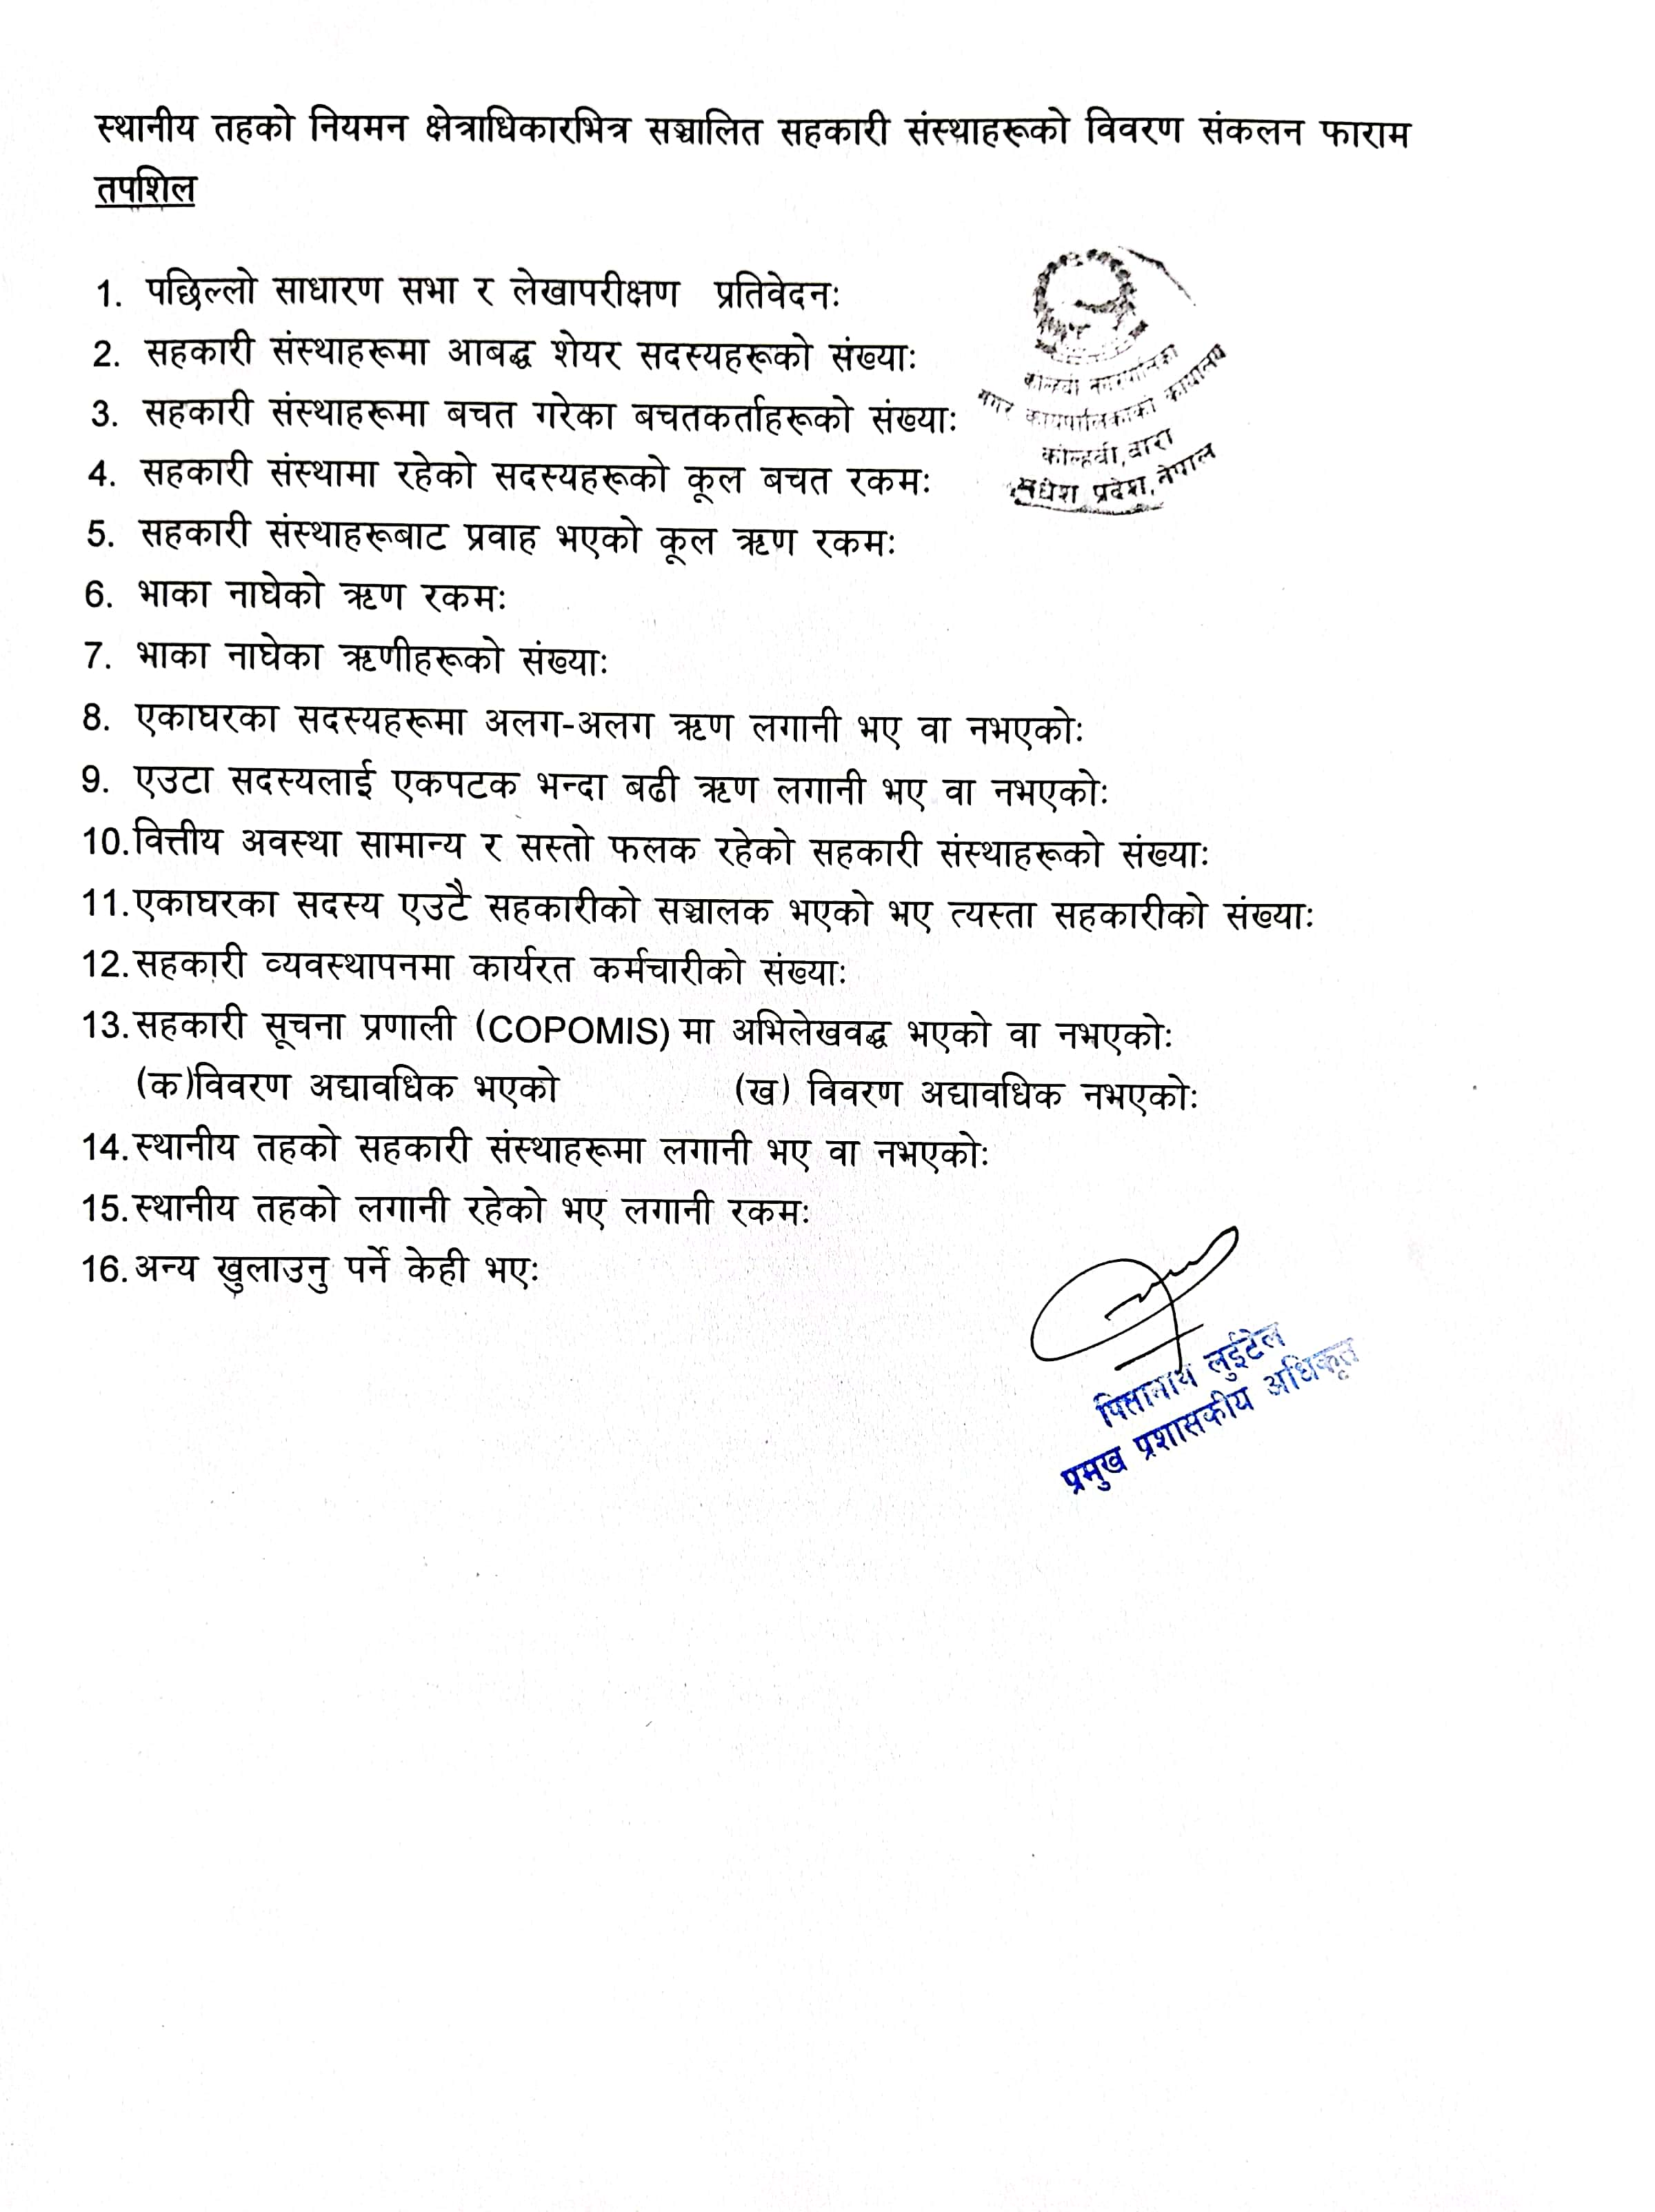 स्थानीय तहको नियमन क्षेत्राधिकारभित्र सञ्चालित सहकारी संस्थाहरूको विवरण संकलन फाराम
तपशिल
1. पछिल्लो साधारण सभा र लेखापरीक्षण प्रतिवेदनः
2. सहकारी संस्थाहरूमा आबद्ध शेयर सदस्यहरूको संख्याः
3. सहकारी संस्थाहरूमा बचत गरेका बचतकर्ताहरूको संख्याः
4. सहकारी संस्थामा रहेको सदस्यहरूको कूल बचत रकमः
5. सहकारी संस्थाहरूबाट प्रवाह भएको कूल ऋण रकमः
6. भाका नाघेको ऋण रकमः
7. भाका नाघेका ऋणीहरूको संख्याः
8. एकाघरका सदस्यहरूमा अलग-अलग ऋण लगानी भए वा नभएकोः
9. एउटा सदस्यलाई एकपटक भन्दा बढी ऋण लगानी भए वा नभएकोः
10. वित्तीय अवस्था सामान्य र सस्तो फलक रहेको सहकारी संस्थाहरूको संख्याः
11. एकाघरका सदस्य एउटै सहकारीको सञ्चालक भएको भए त्यस्ता सहकारीको संख्याः
12. सहकारी व्यवस्थापनमा कार्यरत कर्मचारीको संख्याः
13. सहकारी सूचना प्रणाली (COPOMIS) मा अभिलेखवद्ध भएको वा नभएकोः
(क)विवरण अद्यावधिक भएको (ख) विवरण अद्यावधिक नभएकोः
14. स्थानीय तहको सहकारी संस्थाहरूमा लगानी भए वा नभएकोः
15. स्थानीय तहको लगानी रहेको भए लगानी रकमः
16. अन्य खुलाउनु पर्ने केही भएः
कोल्हवी नगरपालिका
नगर कार्यपालिकाको कार्यालय
कोल्हवी, बारा
मधेश प्रदेश, नेपाल
लुईटेल
प्रमुख प्रशासकीय अधिकृत